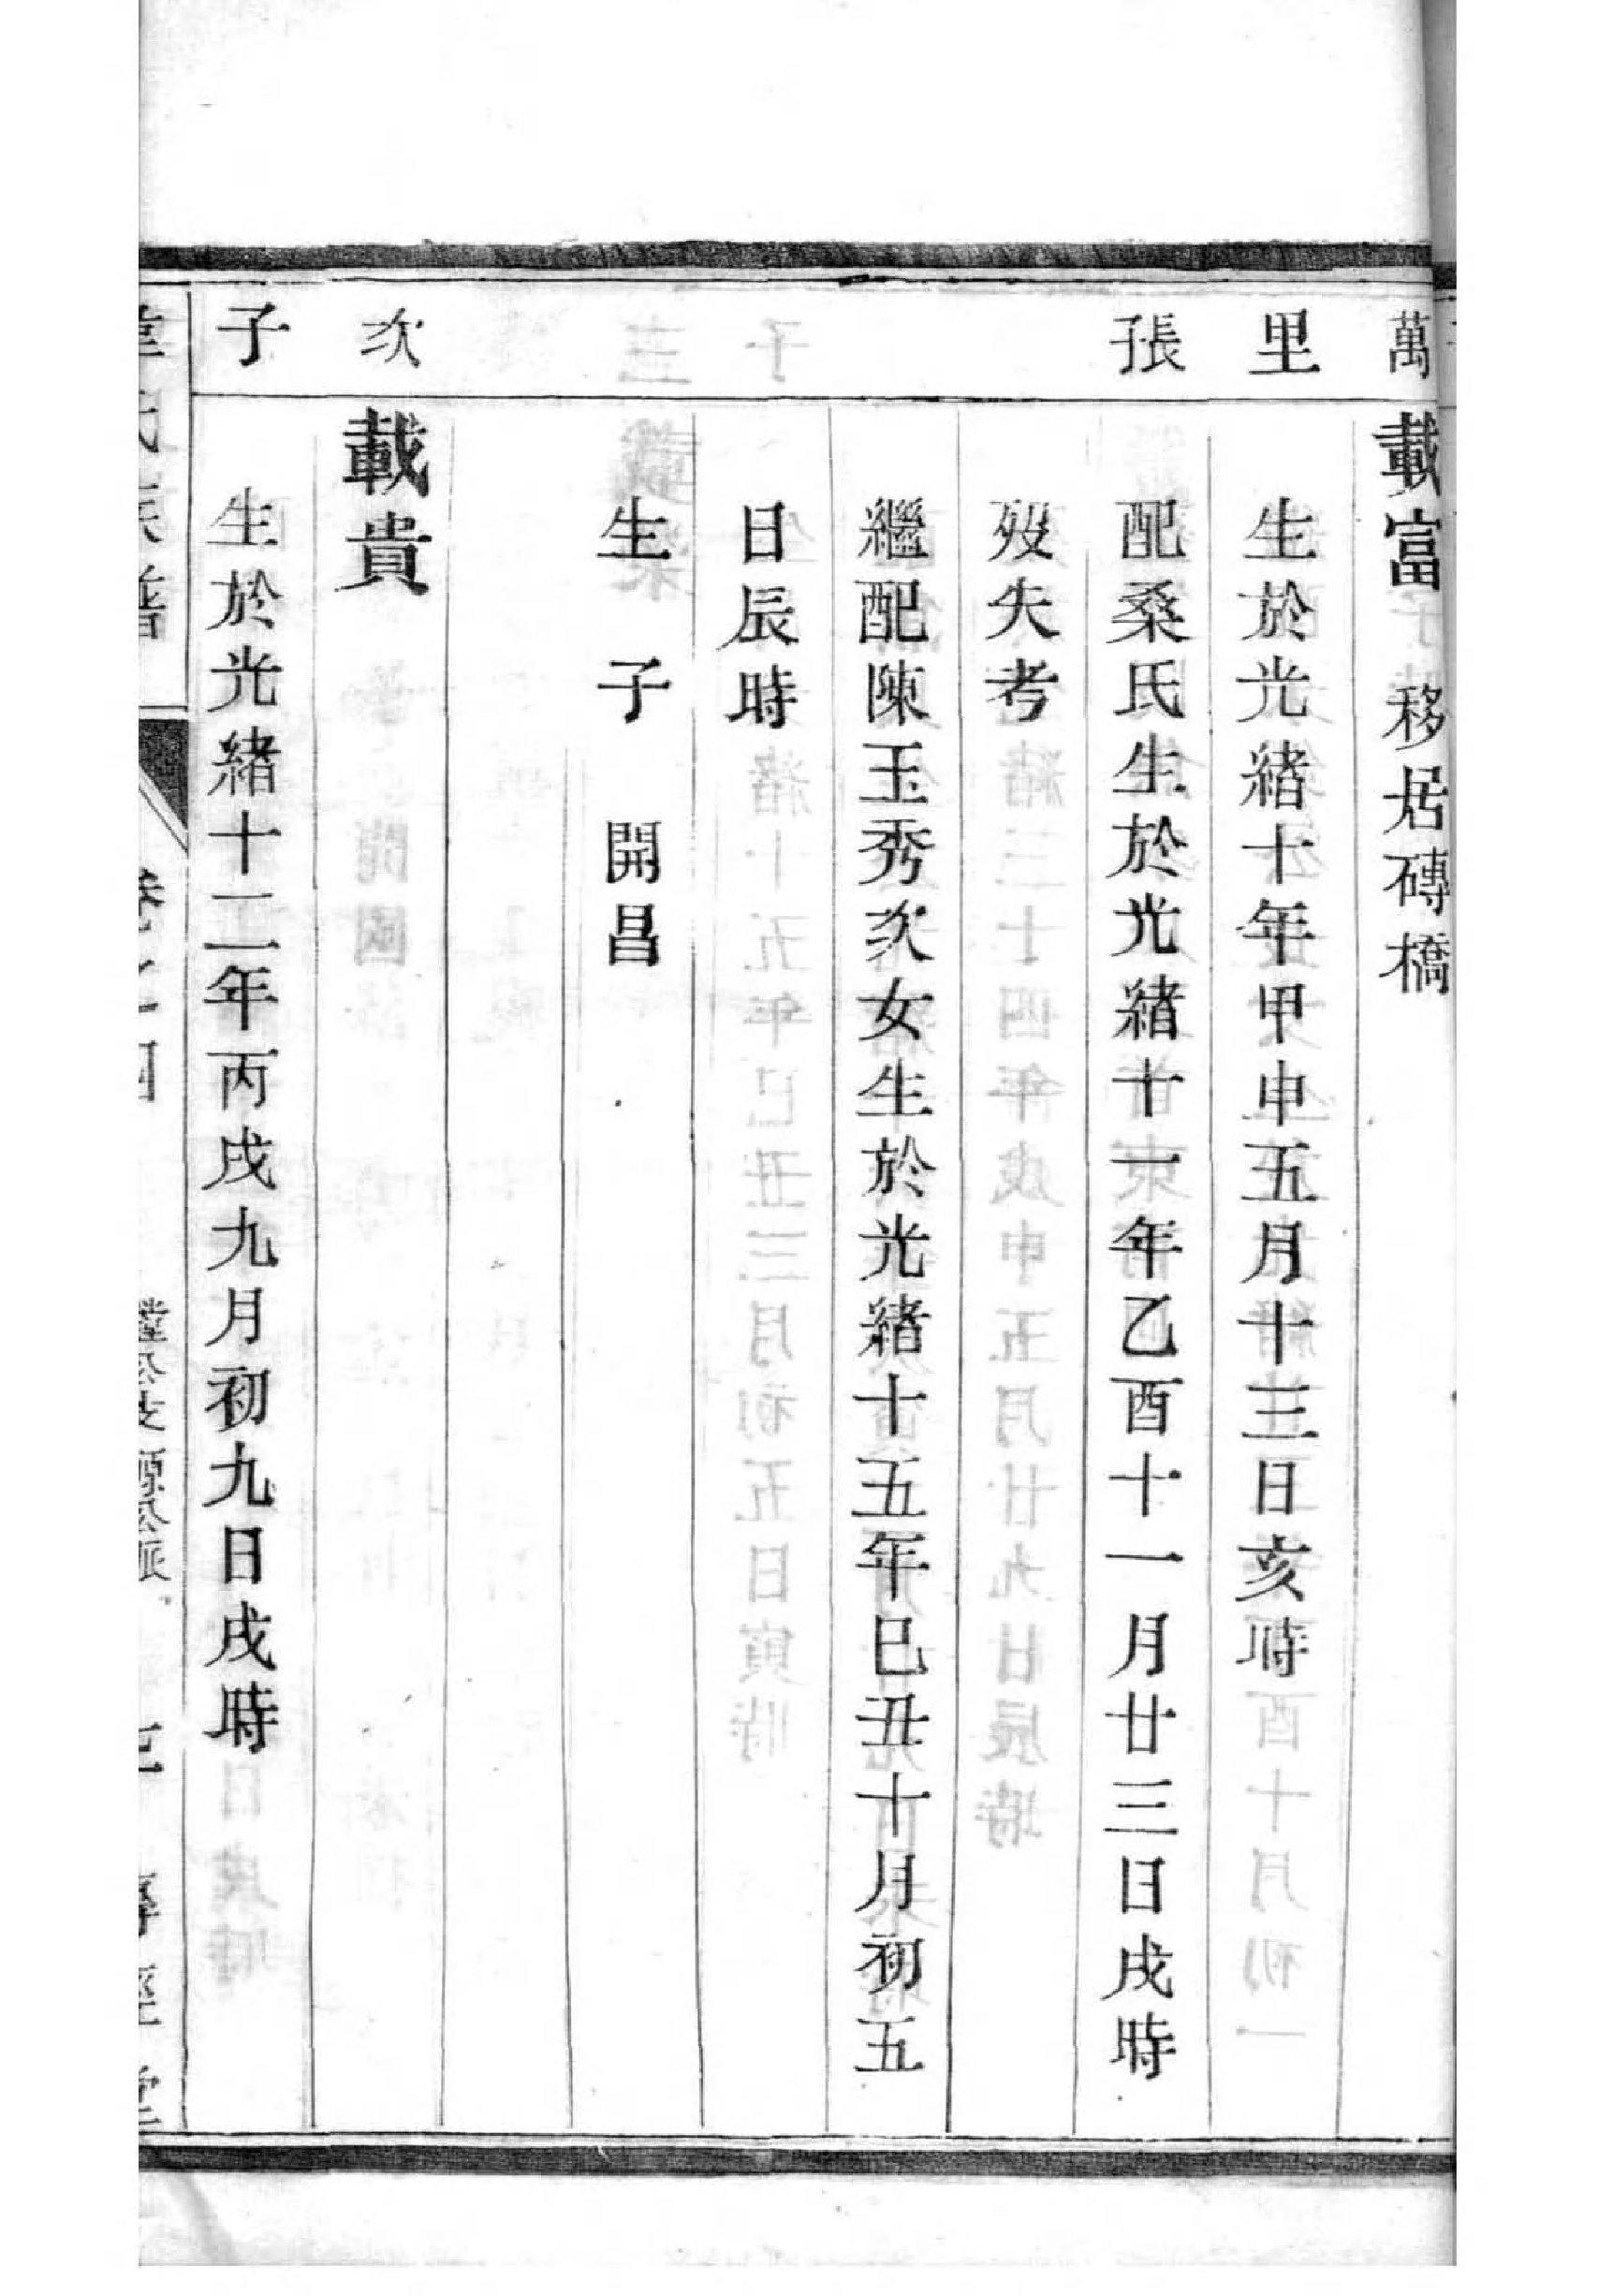 萬
載富 移居磚橋
里
生於光緒十年甲申五月十三日亥時
張子
配桑氏生於光緒十一年乙酉十一月廿三日戌時
歿失考
繼配陳玉秀次女生於光緒十五年己丑十月初五
日辰時
生 子 開昌
次
載貴
子
生於光緒十二年丙戌九月初九日戌時